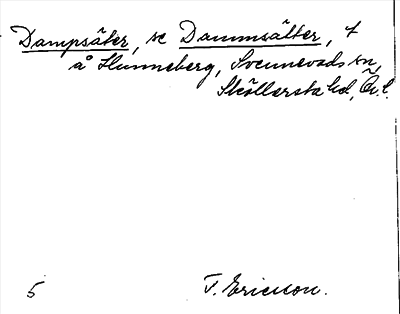 Dampsäter, se Dammsätter, t
å Hunneberg, Svennevads sn,
Sköllersta hd, Ör. l.
5 T. Ericson.